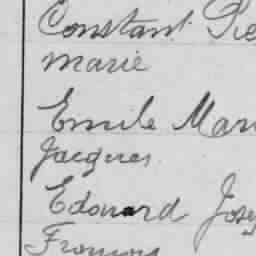 Constant Pie
marie
Emile Mari
Jacques
Edouard Josep
François